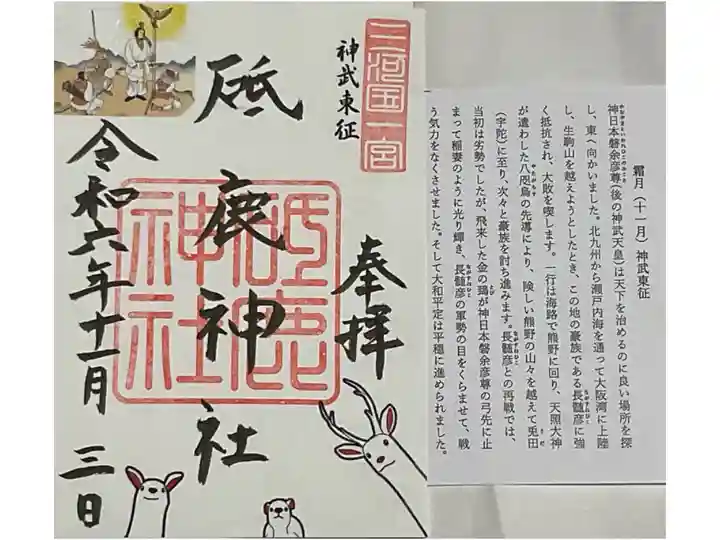 三河国一宮
神武東征
奉拝
砥鹿神社
砥鹿
神社
令和六年十一月三日
霜月(十一月)神武東征
神日本磐余彦尊(後の神武天皇)は天下を治めるのに良い場所を探
し、東へ向かいました。北九州から瀬戸内海を通って大阪湾に上陸
し、生駒山を越えようとしたとき、この地の豪族である長髄彦に強
く抵抗され、大敗を喫します。一行は海路で熊野に回り、天照大神
が遣わした八咫烏の先導により、険しい熊野の山々を越えて兎田
(宇陀)に至り、次々と豪族を討ち進みます。長髄彦との再戦では、
当初は劣勢でしたが、飛来した金の鵄が神日本磐余彦尊の弓先に止
まって稲妻のように光り輝き、長髄彦の軍勢の目をくらませて、戦
う気力をなくさせました。そして大和平定は平穏に進められました。